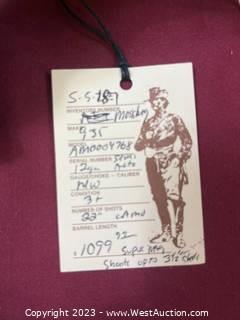 S-S-18
INVENTORY NUMBER
Mossberg
MAKE
935
MODEL
AM0004768
SERIAL NUMBER
12ga Auto
GAUGE/CHOKE - CALIBER
NEW
CONDITION
3+
NUMBER OF SHOTS
22" camo
BARREL LENGTH
.1099 Super Mag
Shoots up to 3½ shells
Copyright 2023 - www.WestAuction.com